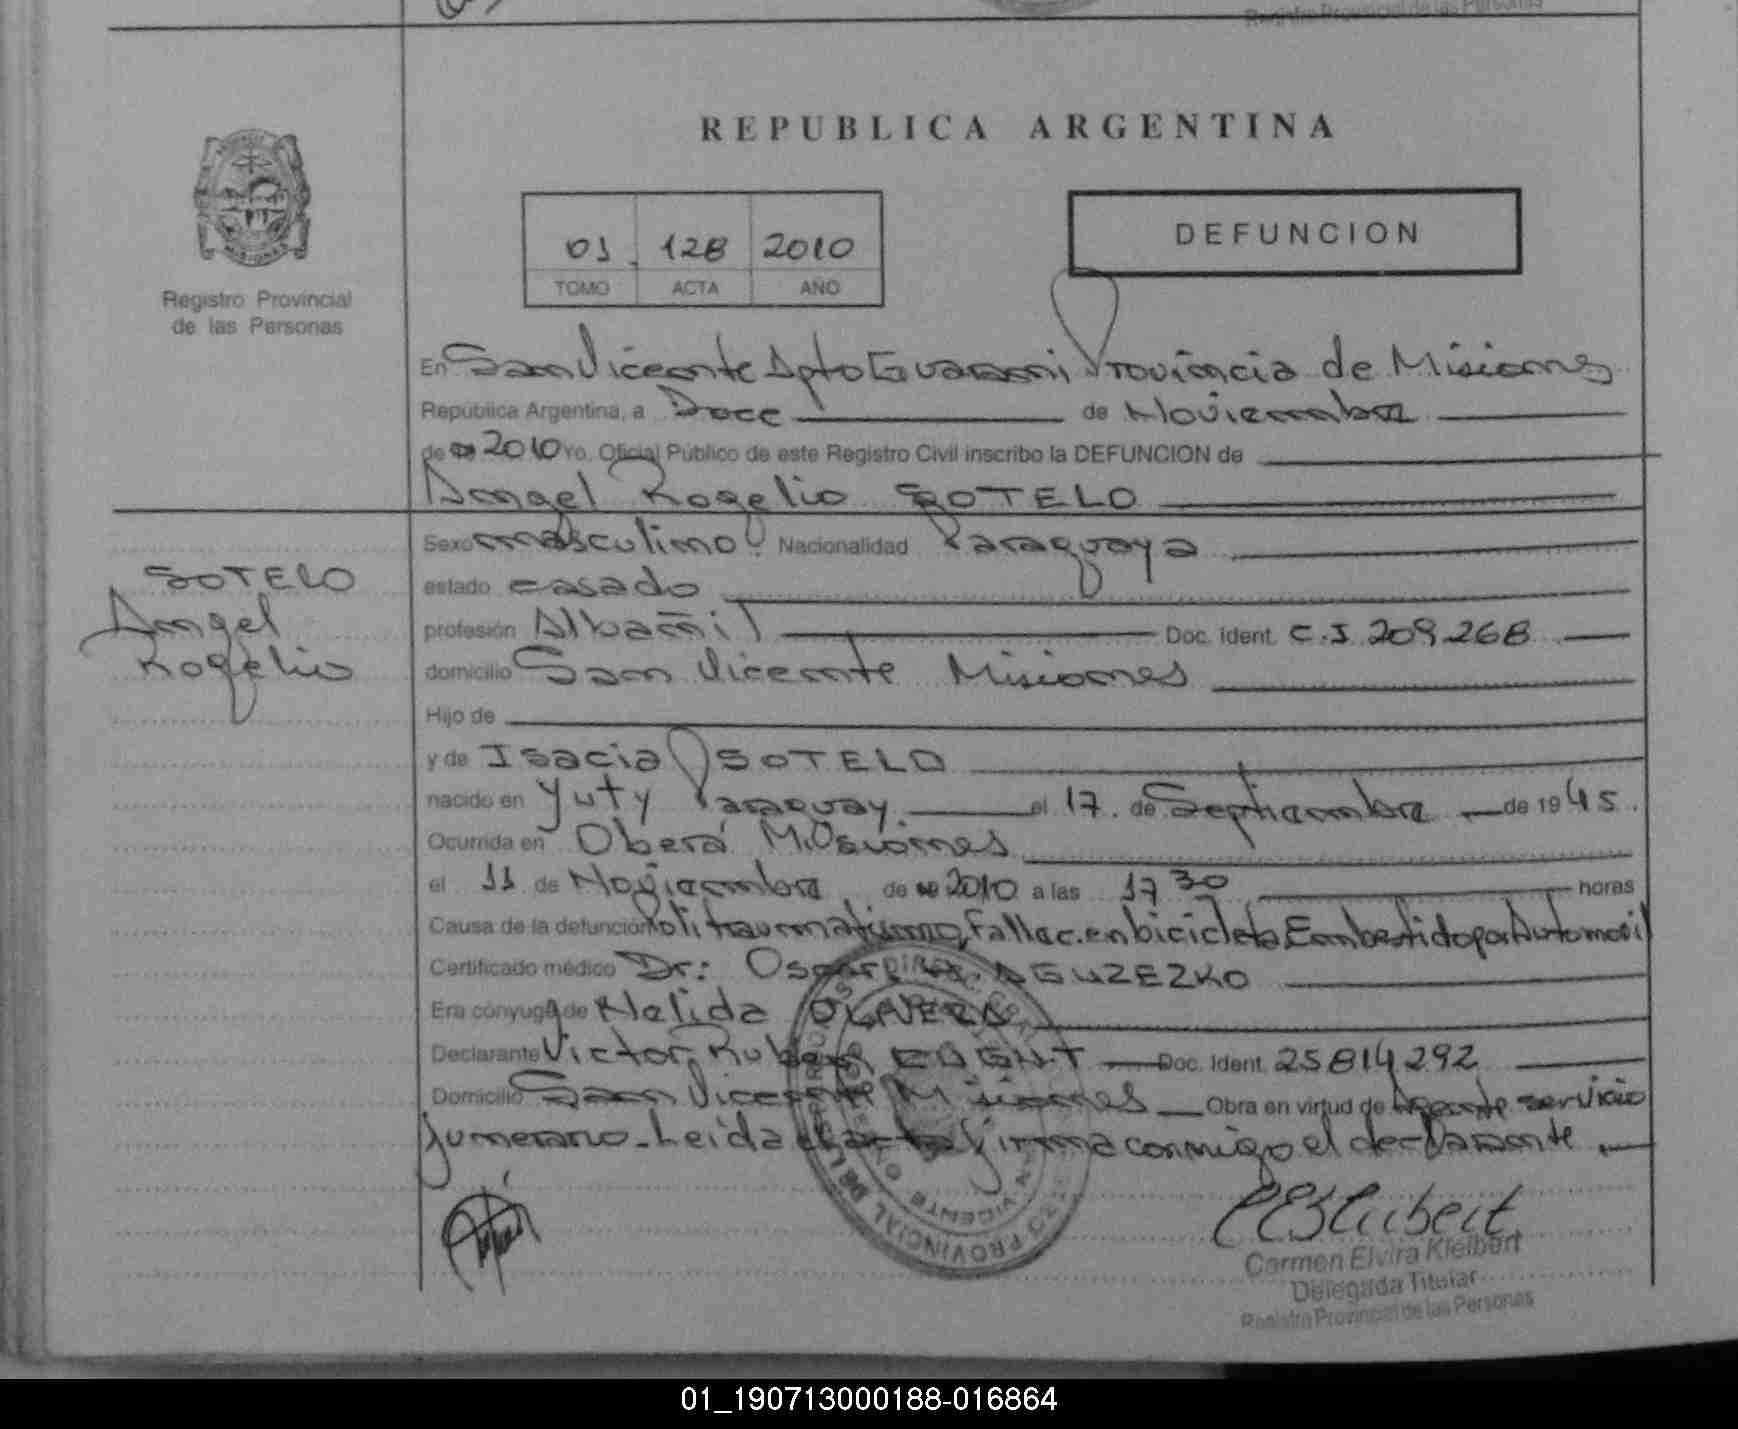 Registro Provincial de las Personas
REPUBLICA ARGENTINA
01 128 2010
TOMO ACTA AÑO
DEFUNCION
Registro Provincial
de las Personas
En San Vicente Dpto Guarani, Provincia de Misiones
República Argentina, a Doce de Noviembre
de 2010 Yo, Oficial Público de este Registro Civil inscribo la DEFUNCION de
Angel Rogelio SOTELO
Sexo masculino. Nacionalidad Paraguaya
SOTELO
Angel
Rogelio
estado casado
profesión Albañil Doc. Ident. C.I. 209.268
domicilio San Vicente Misiones
Hijo de
y de Isacia SOTELO
nacido en Yuty Paraguay. el 17. de Septiembre de 1945.
Ocurrida en Oberá Misiones
el 11 de Noviembre de 2010 a las 17 30 horas
Causa de la defunción Politraumatismo, Fallec. en bicicleta, Embestido por Automovil
Certificado médico Dr: Oscar
Era cónyuge de Nelida OLIVERA
Declarante Victor Ruben Doc. Ident. 25814292
Domicilio San Vicente Misiones Obra en virtud de Agente servicio
funerario - Leida el acta firma conmigo el declarante
Carmen Elvira Kleibert
Delegada Titular
Registro Provincial de las Personas
01_190713000188-016864